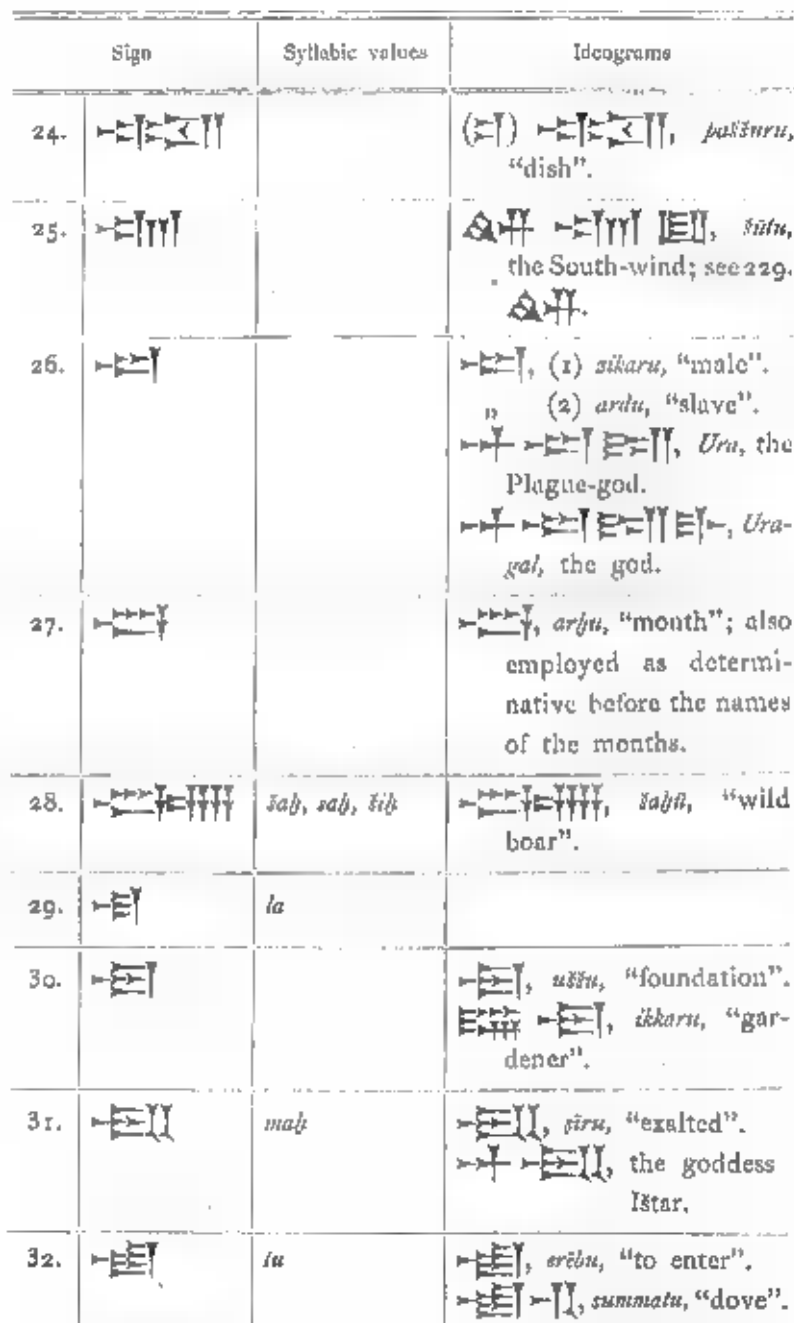 Sign Syllabic values Ideograms
24. (𒄑) paššuru,
"dish".
25. 𒅎 𒇻, šūtu,
the South-wind; see 229.
𒅎.
26. 𒀴 𒀴, (1) zikaru, "male".
" (2) ardu, "slave".
𒀭 𒀴 𒊏, Ura, the
Plague-god.
𒀭 𒀴 𒊏 𒃲, Ura-
gal, the god.
27. 𒌗 𒌗, arḫu, "month"; also
employed as determi-
native before the names
of the months.
28. 𒋚 šaḫ, saḫ, šiḫ 𒋚, šaḫû, "wild
boar".
29. 𒆷 la
30. 𒀳 𒀳, uššu, "foundation".
𒀳, ikkaru, "gar-
dener".
31. 𒈤 maḫ 𒈤, ṣîru, "exalted".
𒀭 𒈤, the goddess
Ištar.
32. 𒌅 tu 𒌅, erēbu, "to enter".
𒌅 𒄷, summatu, "dove".